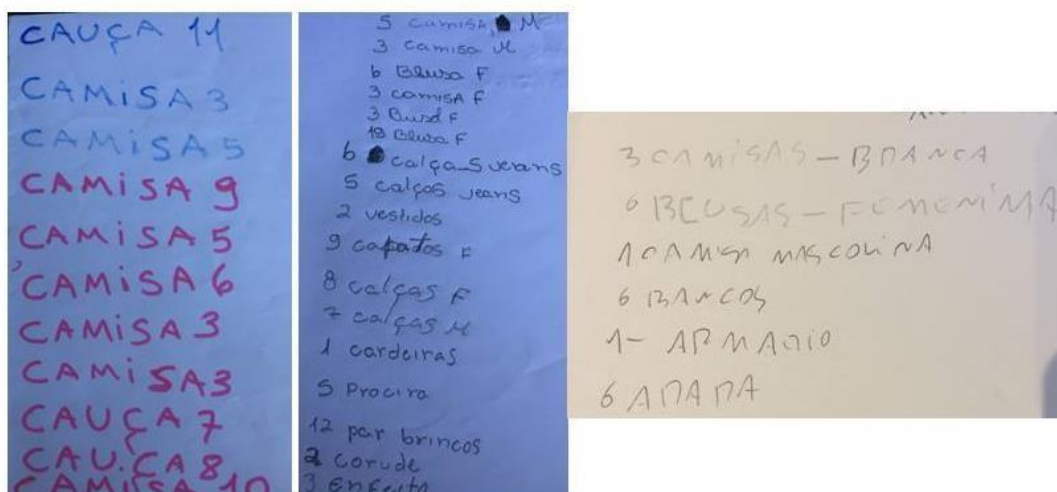 CAUÇA 11
CAMISA 3
CAMISA 5
CAMISA 9
CAMISA 5
CAMISA 6
CAMISA 3
CAMISA 3
CAUÇA 7
CAU.ÇA 8
CAMISA 10
5 camisA M
3 camisa M
6 Blusa F
3 camisA F
3 Busd F
18 Blusa F
6 calças jeans
5 calços jeans
2 vestidos
9 capatos F
8 calças F
7 calças M
1 cardeiras
5 Procira
12 par brincos
2 corude
3
3 CAMISAS - BRANCA
6 BLUSAS - FEMENIMA
1 CAMISA MASCOLINA
6 BANCOS
1- ARMARIO
6 ARARA